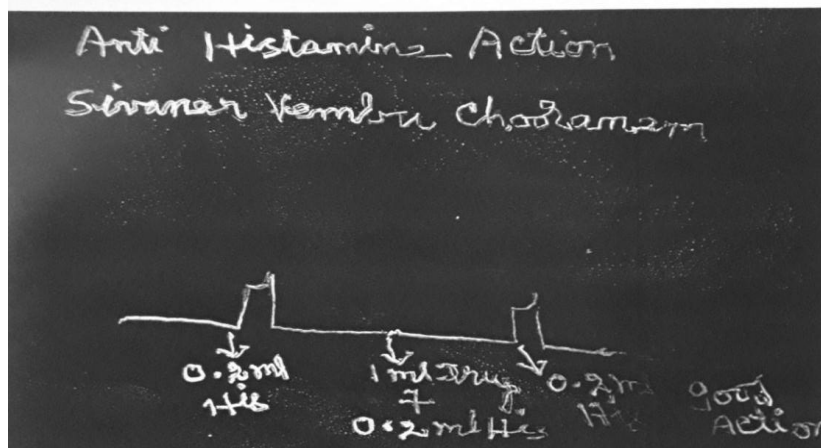 Anti Histamine Action
Sivanar Vembu Chooranam
0.2ml
His
1 ml Drug
+
0.2ml His
0.2ml
His
good
Action